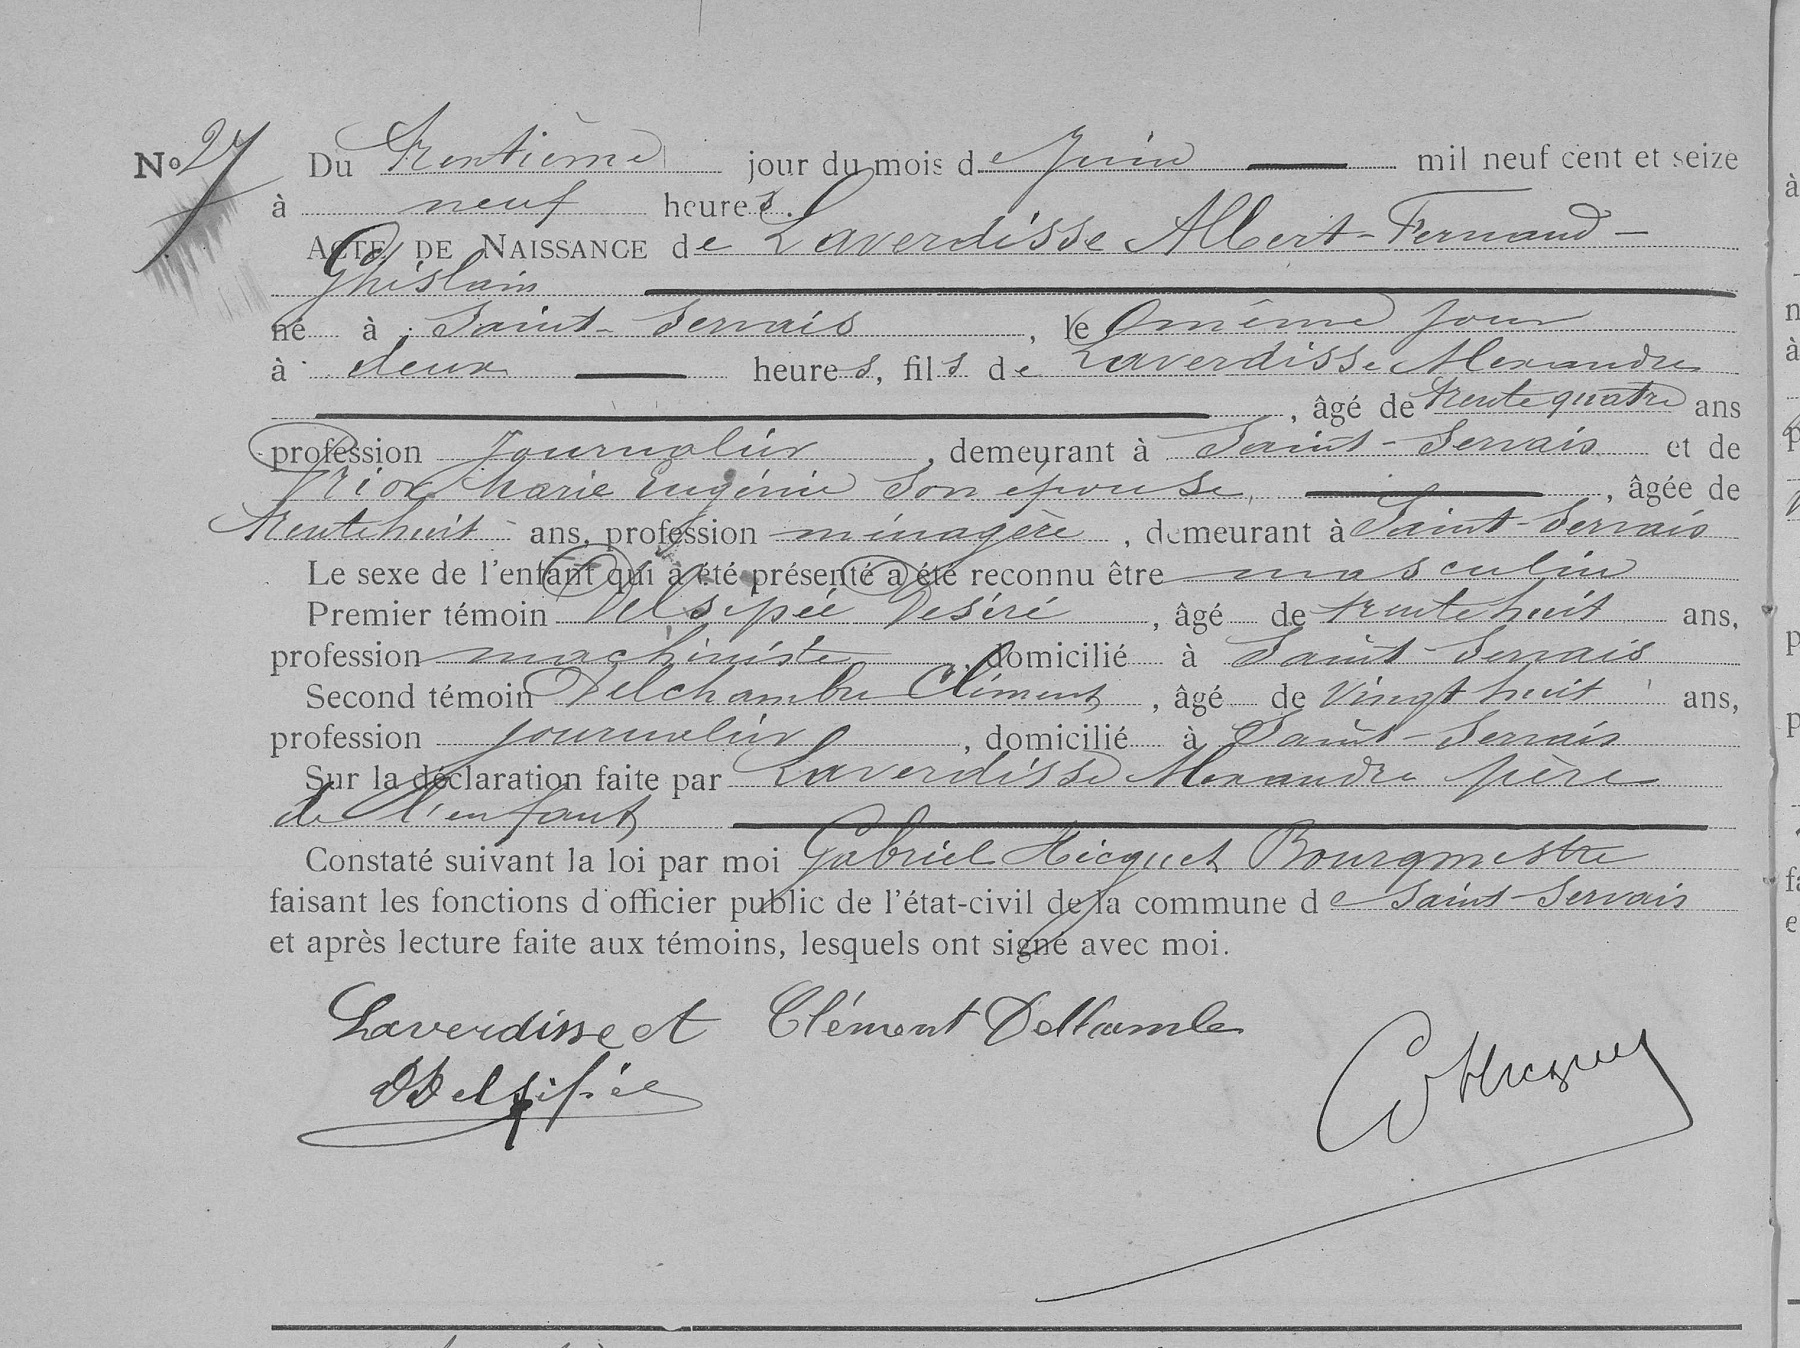 No 27 Du Trentième jour du mois de Juin mil neuf cent et seize
à neuf heures.
ACTE DE NAISSANCE de Laverdisse Albert-Fernand-
Ghislain
né à Saint-Servais, le même jour
à deux heures, fils de Laverdisse Alexandre
, âgé de trente quatre ans
profession journalier, demeurant à Saint-Servais et de
Marie Eugénie son épouse, , âgée de
trente huit ans, profession ménagère, demeurant à Saint-Servais
Le sexe de l'enfant qui a été présenté a été reconnu être masculin
Premier témoin Delsipée Désiré, âgé de trente huit ans,
profession machiniste, domicilié à Saint-Servais
Second témoin Delchambre Clément, âgé de vingt huit ans,
profession journalier, domicilié à Saint-Servais
Sur la déclaration faite par Laverdisse Alexandre père
de l'enfant
Constaté suivant la loi par moi Gabriel Hicguet Bourgmestre
faisant les fonctions d'officier public de l'état-civil de la commune de Saint-Servais
et après lecture faite aux témoins, lesquels ont signé avec moi.
Laverdisse A Clément
D Delsipée